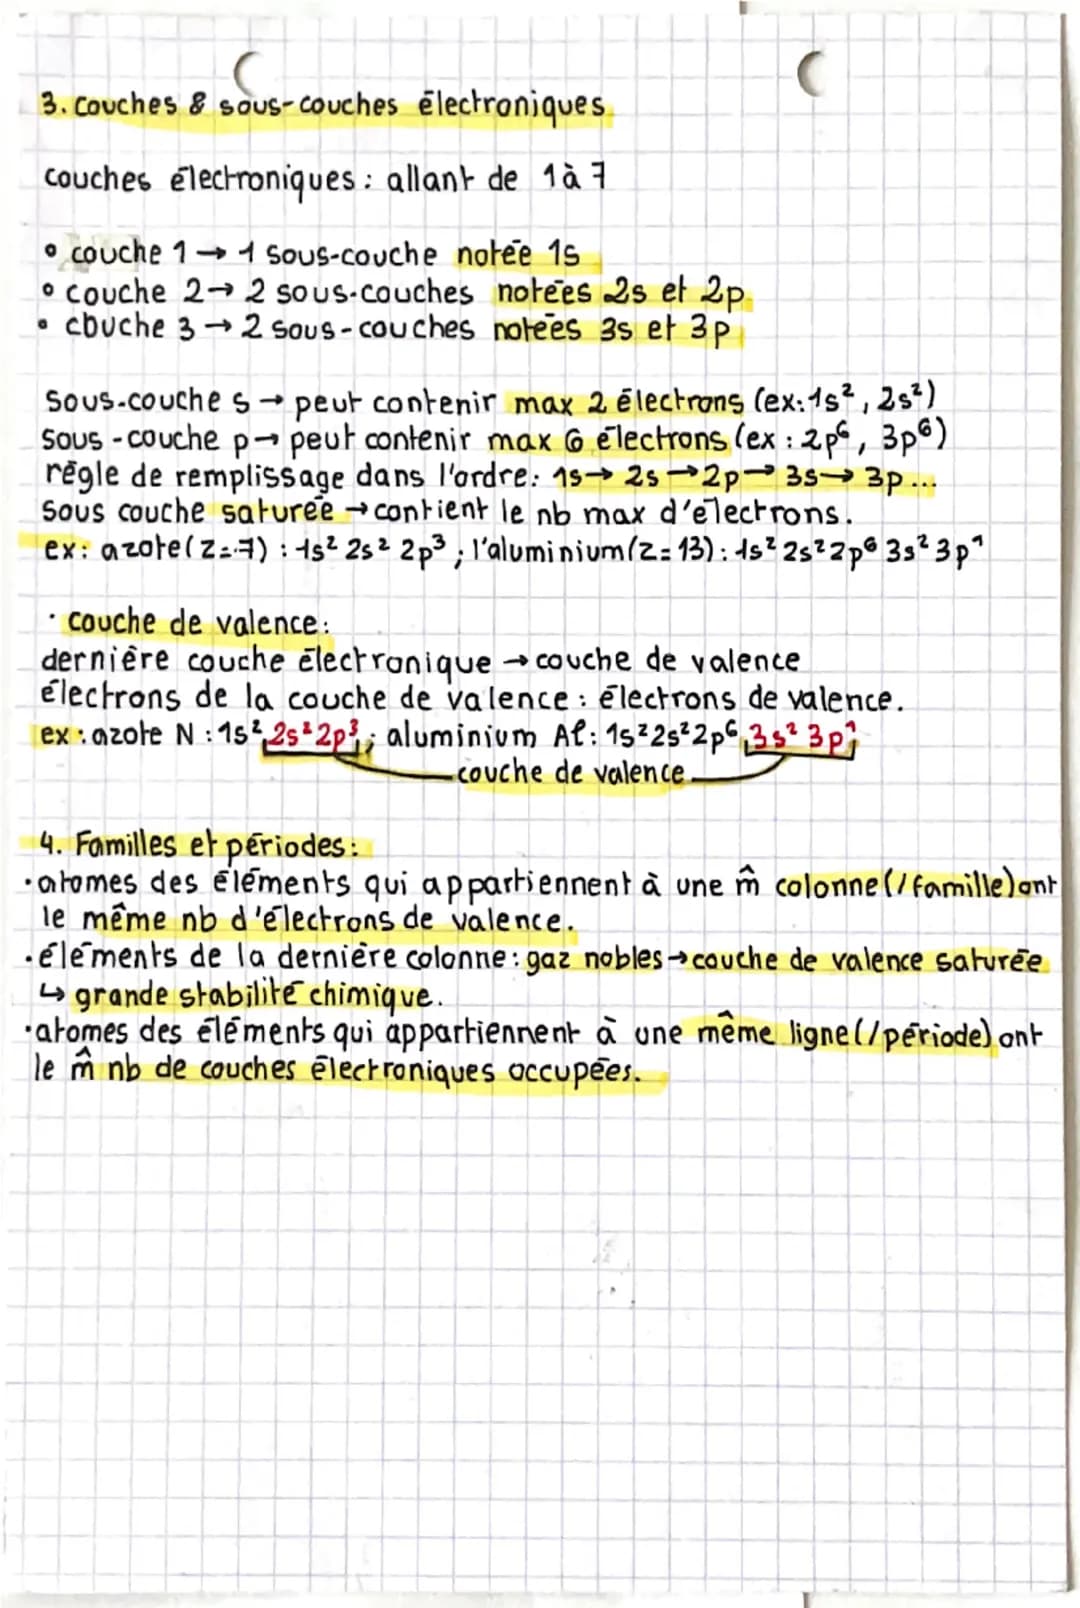 3. Couches & sous-couches électroniques
couches électroniques : allant de 1 à 7
• couche 1 → 1 sous-couche notée 1s
• couche 2 → 2 sous-couches notées 2s et 2p
• couche 3 → 2 sous-couches notées 3s et 3p
Sous-couche s → peut contenir max 2 électrons (ex: 1s², 2s²)
Sous-couche p → peut contenir max 6 électrons (ex : 2p⁶, 3p⁶)
règle de remplissage dans l'ordre: 1s → 2s → 2p → 3s → 3p...
Sous couche saturée → contient le nb max d'électrons.
ex: azote (Z=7) : 1s² 2s² 2p³ ; l'aluminium (Z=13) : 1s² 2s² 2p⁶ 3s² 3p¹
· couche de valence:
dernière couche électronique → couche de valence
électrons de la couche de valence : électrons de valence.
ex : azote N : 1s² 2s² 2p³ ; aluminium Al : 1s² 2s² 2p⁶ 3s² 3p¹
couche de valence
4. Familles et périodes :
· atomes des éléments qui appartiennent à une m̂ colonne (/famille) ont
le même nb d'électrons de valence.
· éléments de la dernière colonne : gaz nobles → couche de valence saturée
↳ grande stabilité chimique.
· atomes des éléments qui appartiennent à une même ligne (/période) ont
le m̂ nb de couches électroniques occupées.